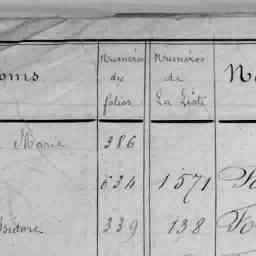 oms Numéros des folios Numéros de La Liste N
Marie 386
634 1571
Isidore 339 138